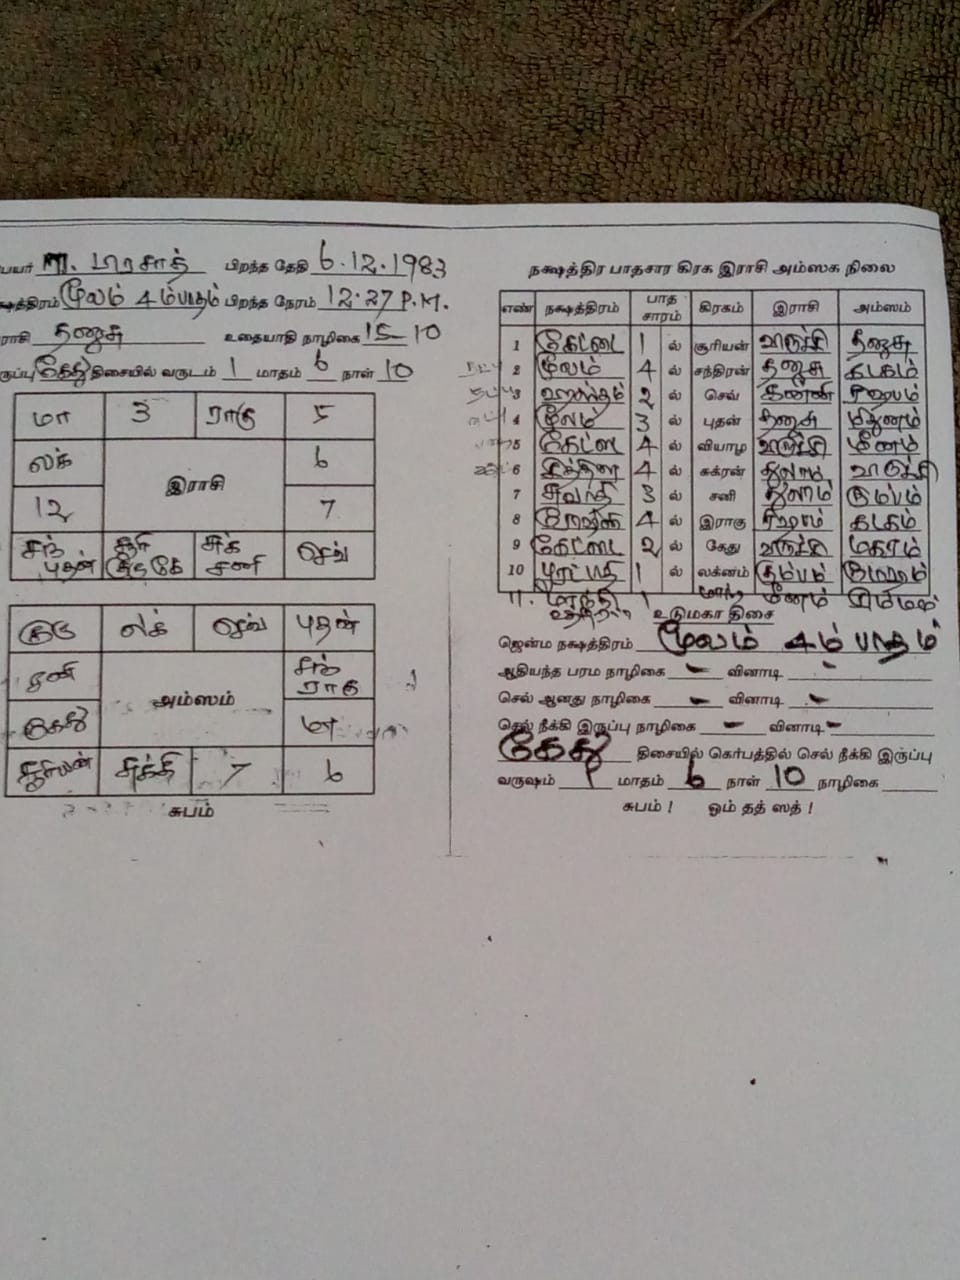 பெயர் M. பிரசாத் பிறந்த தேதி 6.12.1983
க்ஷத்திரம் மூலம் 4ம்பாதம் பிறந்த நேரம் 12.27 P.M.
ராசி தனுசு உதையாதி நாழிகை 15-10
ருப்பு கேது திசையில் வருடம் 1 மாதம் 6 நாள் 10
மா 3 ராகு 5
லக் 6
இராசி
12 7
சந் புதன் சூரி குரு கே சுக் சனி செவ்
குரு லக் செவ் புதன்
சனி சந் ராகு
அம்ஸம்
கேது மா
சூரியன் சுக்கி 7 6
சுபம்
நக்ஷத்திர பாதசார கிரக இராசி அம்ஸக நிலை
எண் நக்ஷத்திரம் பாத சாரம் கிரகம் இராசி அம்ஸம்
1 கேட்டை 1 ல் சூரியன் விருச்சி தனுசு
2 மூலம் 4 ல் சந்திரன் தனுசு கடகம்
3 ஹஸ்தம் 2 ல் செவ் கன்னி ரிஷபம்
4 மூலம் 3 ல் புதன் தனுசு மிதுனம்
5 கேட்டை 4 ல் வியாழ விருச்சி மீனம்
6 சித்திரை 4 ல் சுக்ரன் துலாம் விருச்சி
7 சுவாதி 3 ல் சனி துலாம் கும்பம்
8 ரோஹிணி 4 ல் இராகு ரிஷபம் கடகம்
9 கேட்டை 2 ல் கேது விருச்சி மகரம்
10 பூரட்டாதி 1 ல் லக்னம் கும்பம் மேஷம்
11. மாந்தி 1 மாந் மீனம் சிம்மம்
உடுமகா திசை
ஜென்ம நக்ஷத்திரம் மூலம் 4ம் பாதம்
ஆதியந்த பரம நாழிகை – வினாடி -
செல் ஆனது நாழிகை – வினாடி –
செல் நீக்கி இருப்பு நாழிகை – வினாடி –
கேது திசையில் கெர்பத்தில் செல் நீக்கி இருப்பு
வருஷம் 1 மாதம் 6 நாள் 10 நாழிகை
சுபம் ! ஓம் தத் ஸத் !